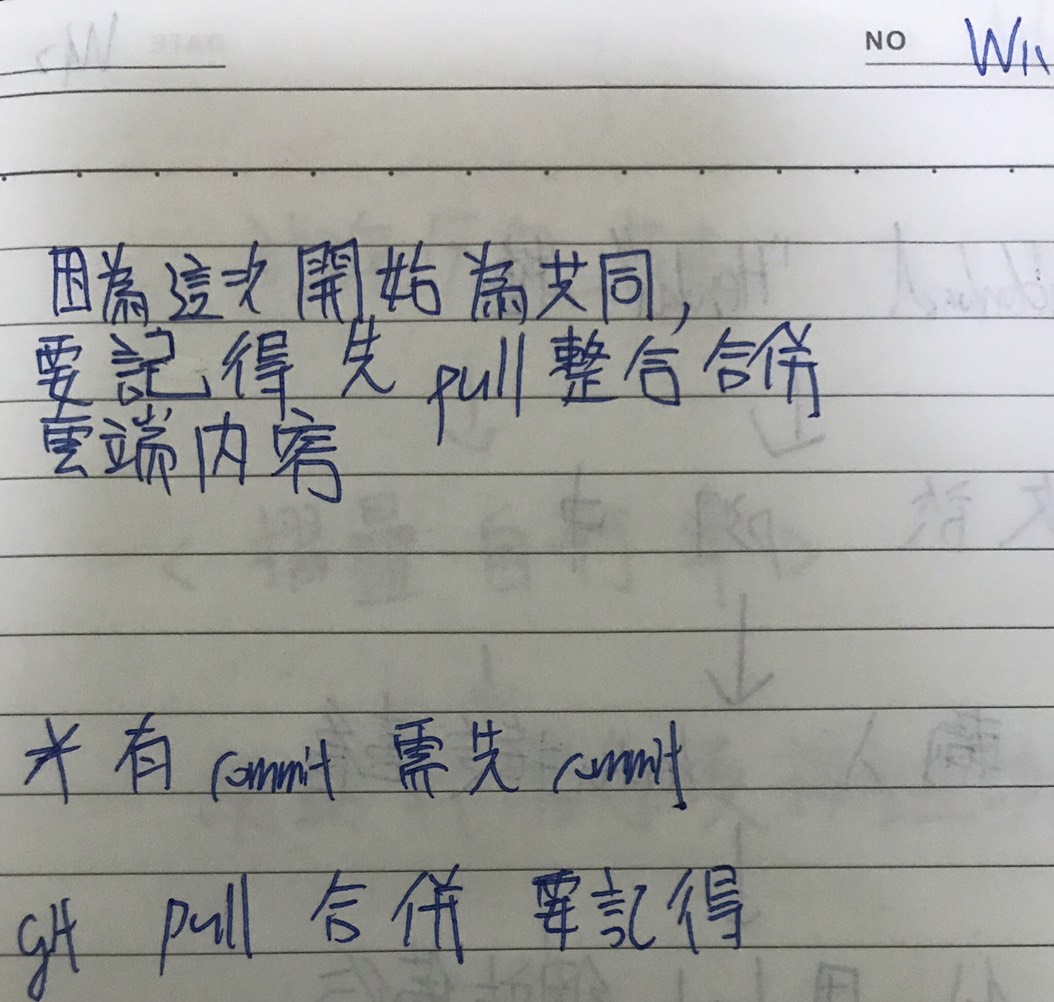 NO
因為這次開始為共同,
要記得先 pull 整合合併
雲端内容
* 有 commit 需先 commit
git pull 合併 要記得